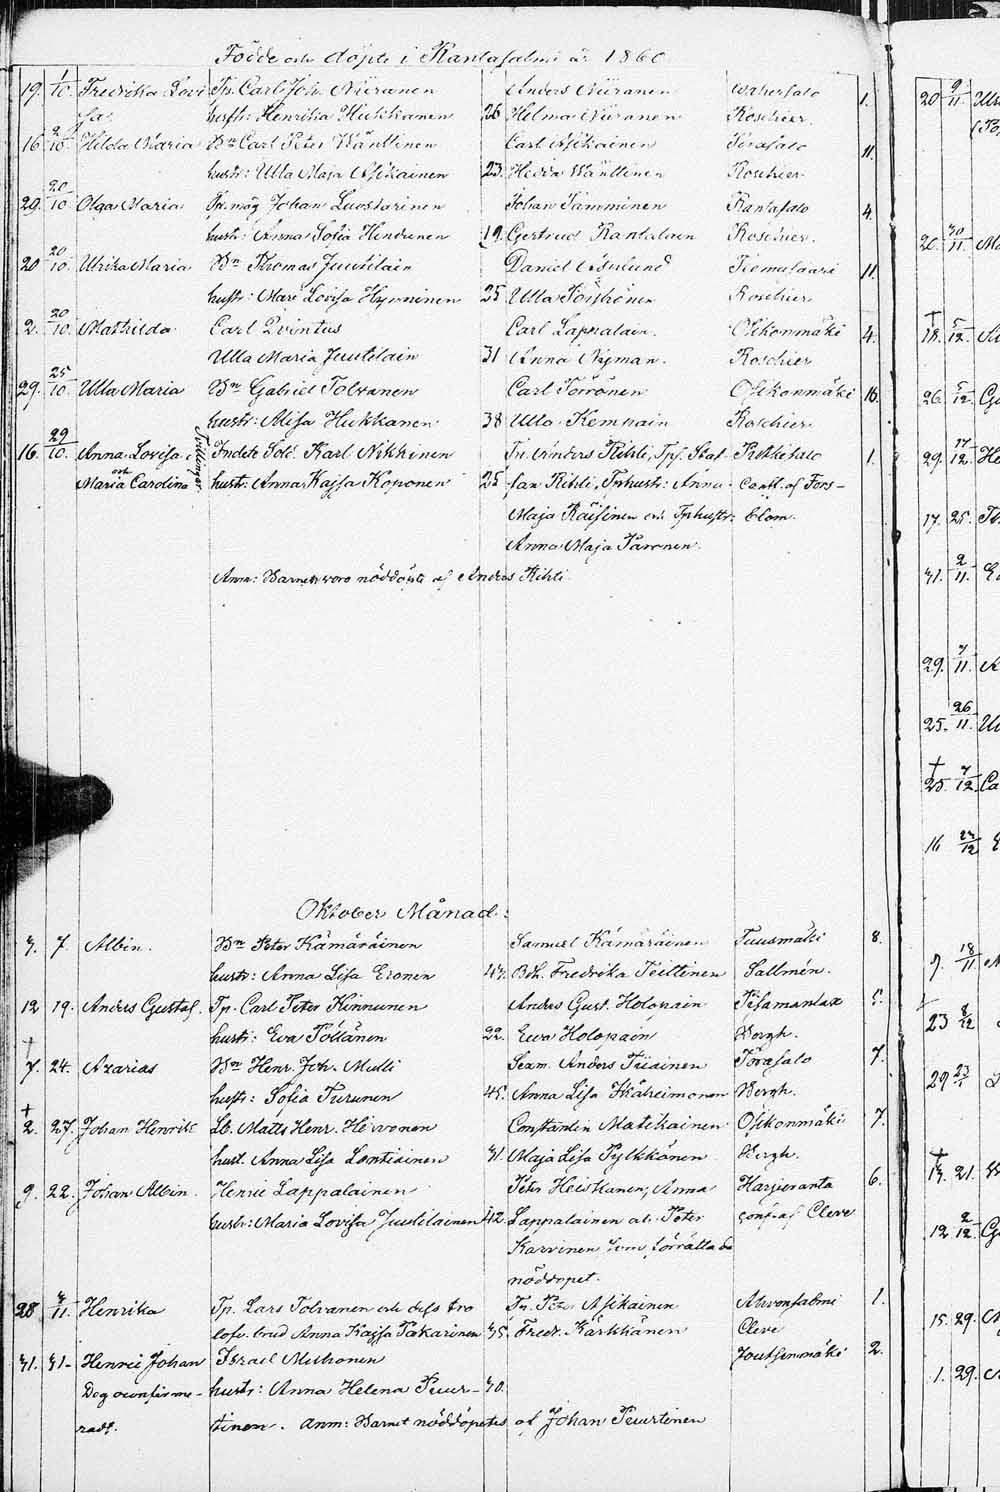 Födde och döpte i Rantasalmi år 1860
19. 1/10. Fredrika Lovi Tp. Carl Joh. Niiranen Anders Niiranen 1.
sa. hustr: Henrika Hukkanen 26 Helma Niiranen Roschier.
16 10. Hilda Maria Bn Carl Peter Wänttinen Carl Asikainen 11.
hustr: Ulla Maja Asikainen 23. Hedda Wänttinen Roschier
29. 20/10 Olga Maria Johan Luostarinen Johan Tamminen Rantasalo 4.
hustr: Anna Sofia Hindunen 19. Gertrud Rantalain Roschier.
20 20/10. Ulrika Maria Bn Thomas Juutilain Daniel Asplund Tiemasaari 11.
hustr: Mari Lovisa Hyvninen 25 Ulla Roschier
2. 20/10. Mathilda Carl Qvintus Carl Lappalain. Osikonmäki 4.
Ulla Maria Juutilain 31 Anna Nyman. Roschier
29. 25/10. Ulla Maria Bn Gabriel Tolvanen Carl Torrönen Osikonmäki 16.
hustr: Alisa Hukkanen 38 Ulla Kemnain Roschier
16. 29/10. Anna Lovisa Tvillingar Indelt Sold. Karl Nikkinen Tn. Anders Rihti, Tpf. Staf- Pirkkisalo 1.
och Maria Carolina hustr: Anna Kajsa Koponen 25 fan Rihti, Tphustr: Anna Conf. af Fors-
Maja Räisinen och Tphustr: blom.
Anna Maja Paronen.
Anm: Barnen voro nöddöpte af Anders Rihti
Oktober Månad:
3. 7. Albin. Bn Peter Kämäräinen Samuel Kämäräinen Tuusmäki 8.
hustr: Anna Lisa Eronen 43. Fredrika Teittinen Sallmén.
12 19. Anders Gustaf. Tp. Carl Peter Kinnunen Anders Gust. Holopain Pisamanlax 5.
hustr: Eva Pöllänen 22. Eva Holopain Bergh.
† 7. 24. Azarias Bn Henr. Joh. Multi Sexm. Anders Tiiainen Porasalo 7.
hustr: Sofia Turunen 45. Anna Lisa Ikäheimonen Bergh.
† 2. 27. Johan Henrik Lb. Matts Henr. Hirvonen Constantin Matikainen Osikonmäki 7.
hust. Anna Lisa Lantiainen 31. Maja Lisa Pylkkönen Bergh.
9. 22. Johan Albin. Henric Lappalainen Peter Heiskanen, Anna Harjuranta 6.
hustr: Maria Lovisa Juutilainen 42 Lappalainen och Peter conf. af Cleve
Karvinen som förrättade
nöddopet.
28 4/11. Henrika Tp. Lars Tolvanen och dess tro Tn. Peter Asikainen Ahvensalmi 1.
lofv. brud Anna Kajsa Pakarinen 35 Fredr. Kärkkänen Cleve
31. 31- Henric Johan Israel Methonen Joutsenmäki 2.
Dog oconfirme- hustr: Anna Helena Puur- 30.
radt. tinen. Anm: Barnet nöddöptes af Johan Puurtinen
20 9/11
20 30/11.
† 18. 5/12.
26. 5/12.
29. 17/12. He
17. 25.
31. 2/11.
29. 7/11.
25. 26/11.
† 25. 7/12. Ca
16 23/12
7. 18/11
23 8/12
29
† 13. 21.
12. 2/12.
15. 29.
1. 29.